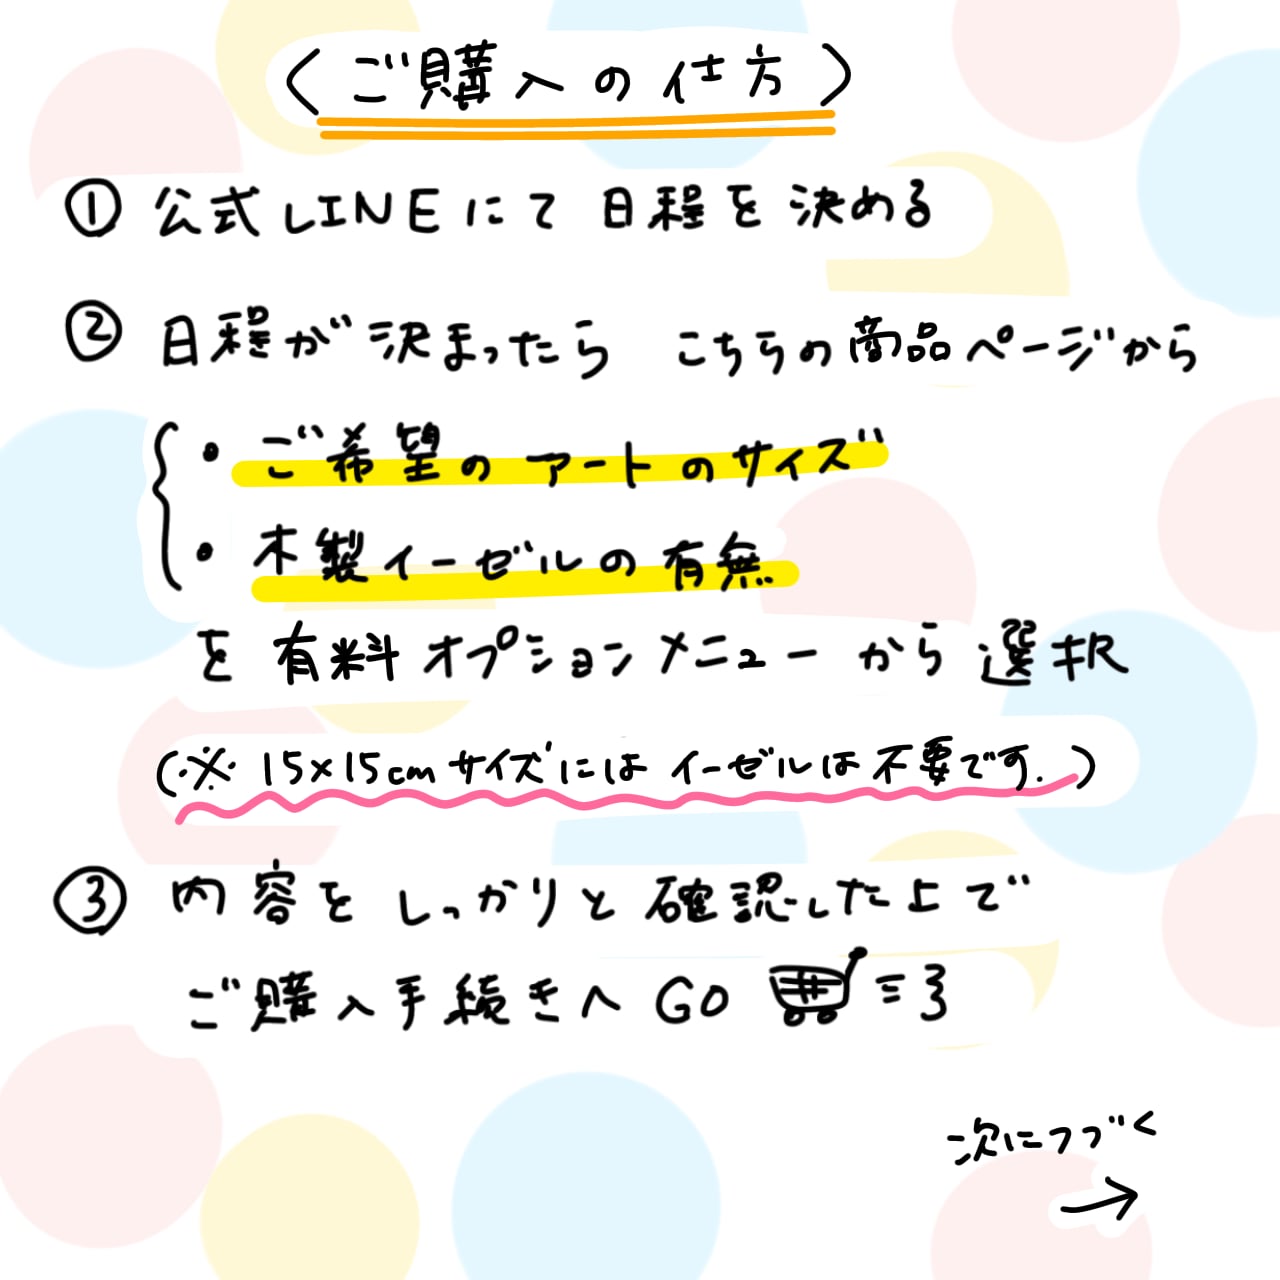 〈ご購入の仕方〉
① 公式LINEにて日程を決める
② 日程が決まったら こちらの商品ページから
・ご希望のアートのサイズ
・木製イーゼルの有無
を有料オプションメニューから選択
(※ 15×15cmサイズにはイーゼルは不要です.)
③ 内容をしっかりと確認した上で
ご購入手続きへGO
次につづく
→